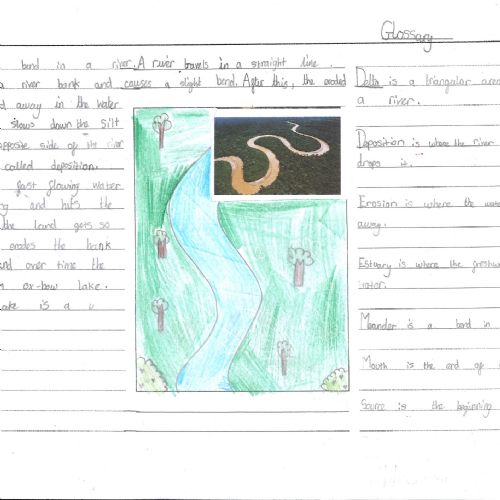 Glossary
bend in a river. A river travels in a straight line.
a river bank and causes a slight bend. After this, the eroded
away in the water
slows down the silt
opposite side of the river
called deposition.
fast flowing water
and hits the
the land gets so
erodes the bank
and over time the
ox-bow lake.
lake is a
Delta is a triangular area
a river.
Deposition is where the river
drops it.
Erosion is where the wate
away.
Estuary is where the freshw
water.
Meander is a bend in
Mouth is the end of
Source is the beginning